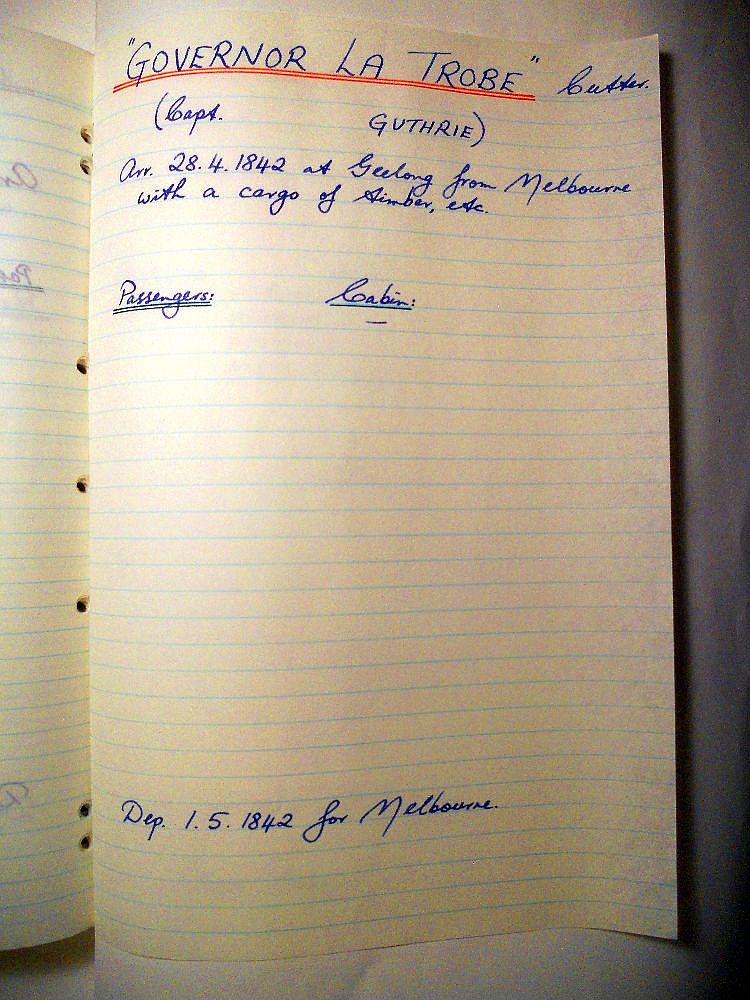 "GOVERNOR LA TROBE" Cutter.
(Capt. GUTHRIE)
Arr. 28.4.1842 at Geelong from Melbourne
with a cargo of timber, etc.
Passengers: Cabin:
—
Dep. 1.5.1842 for Melbourne.